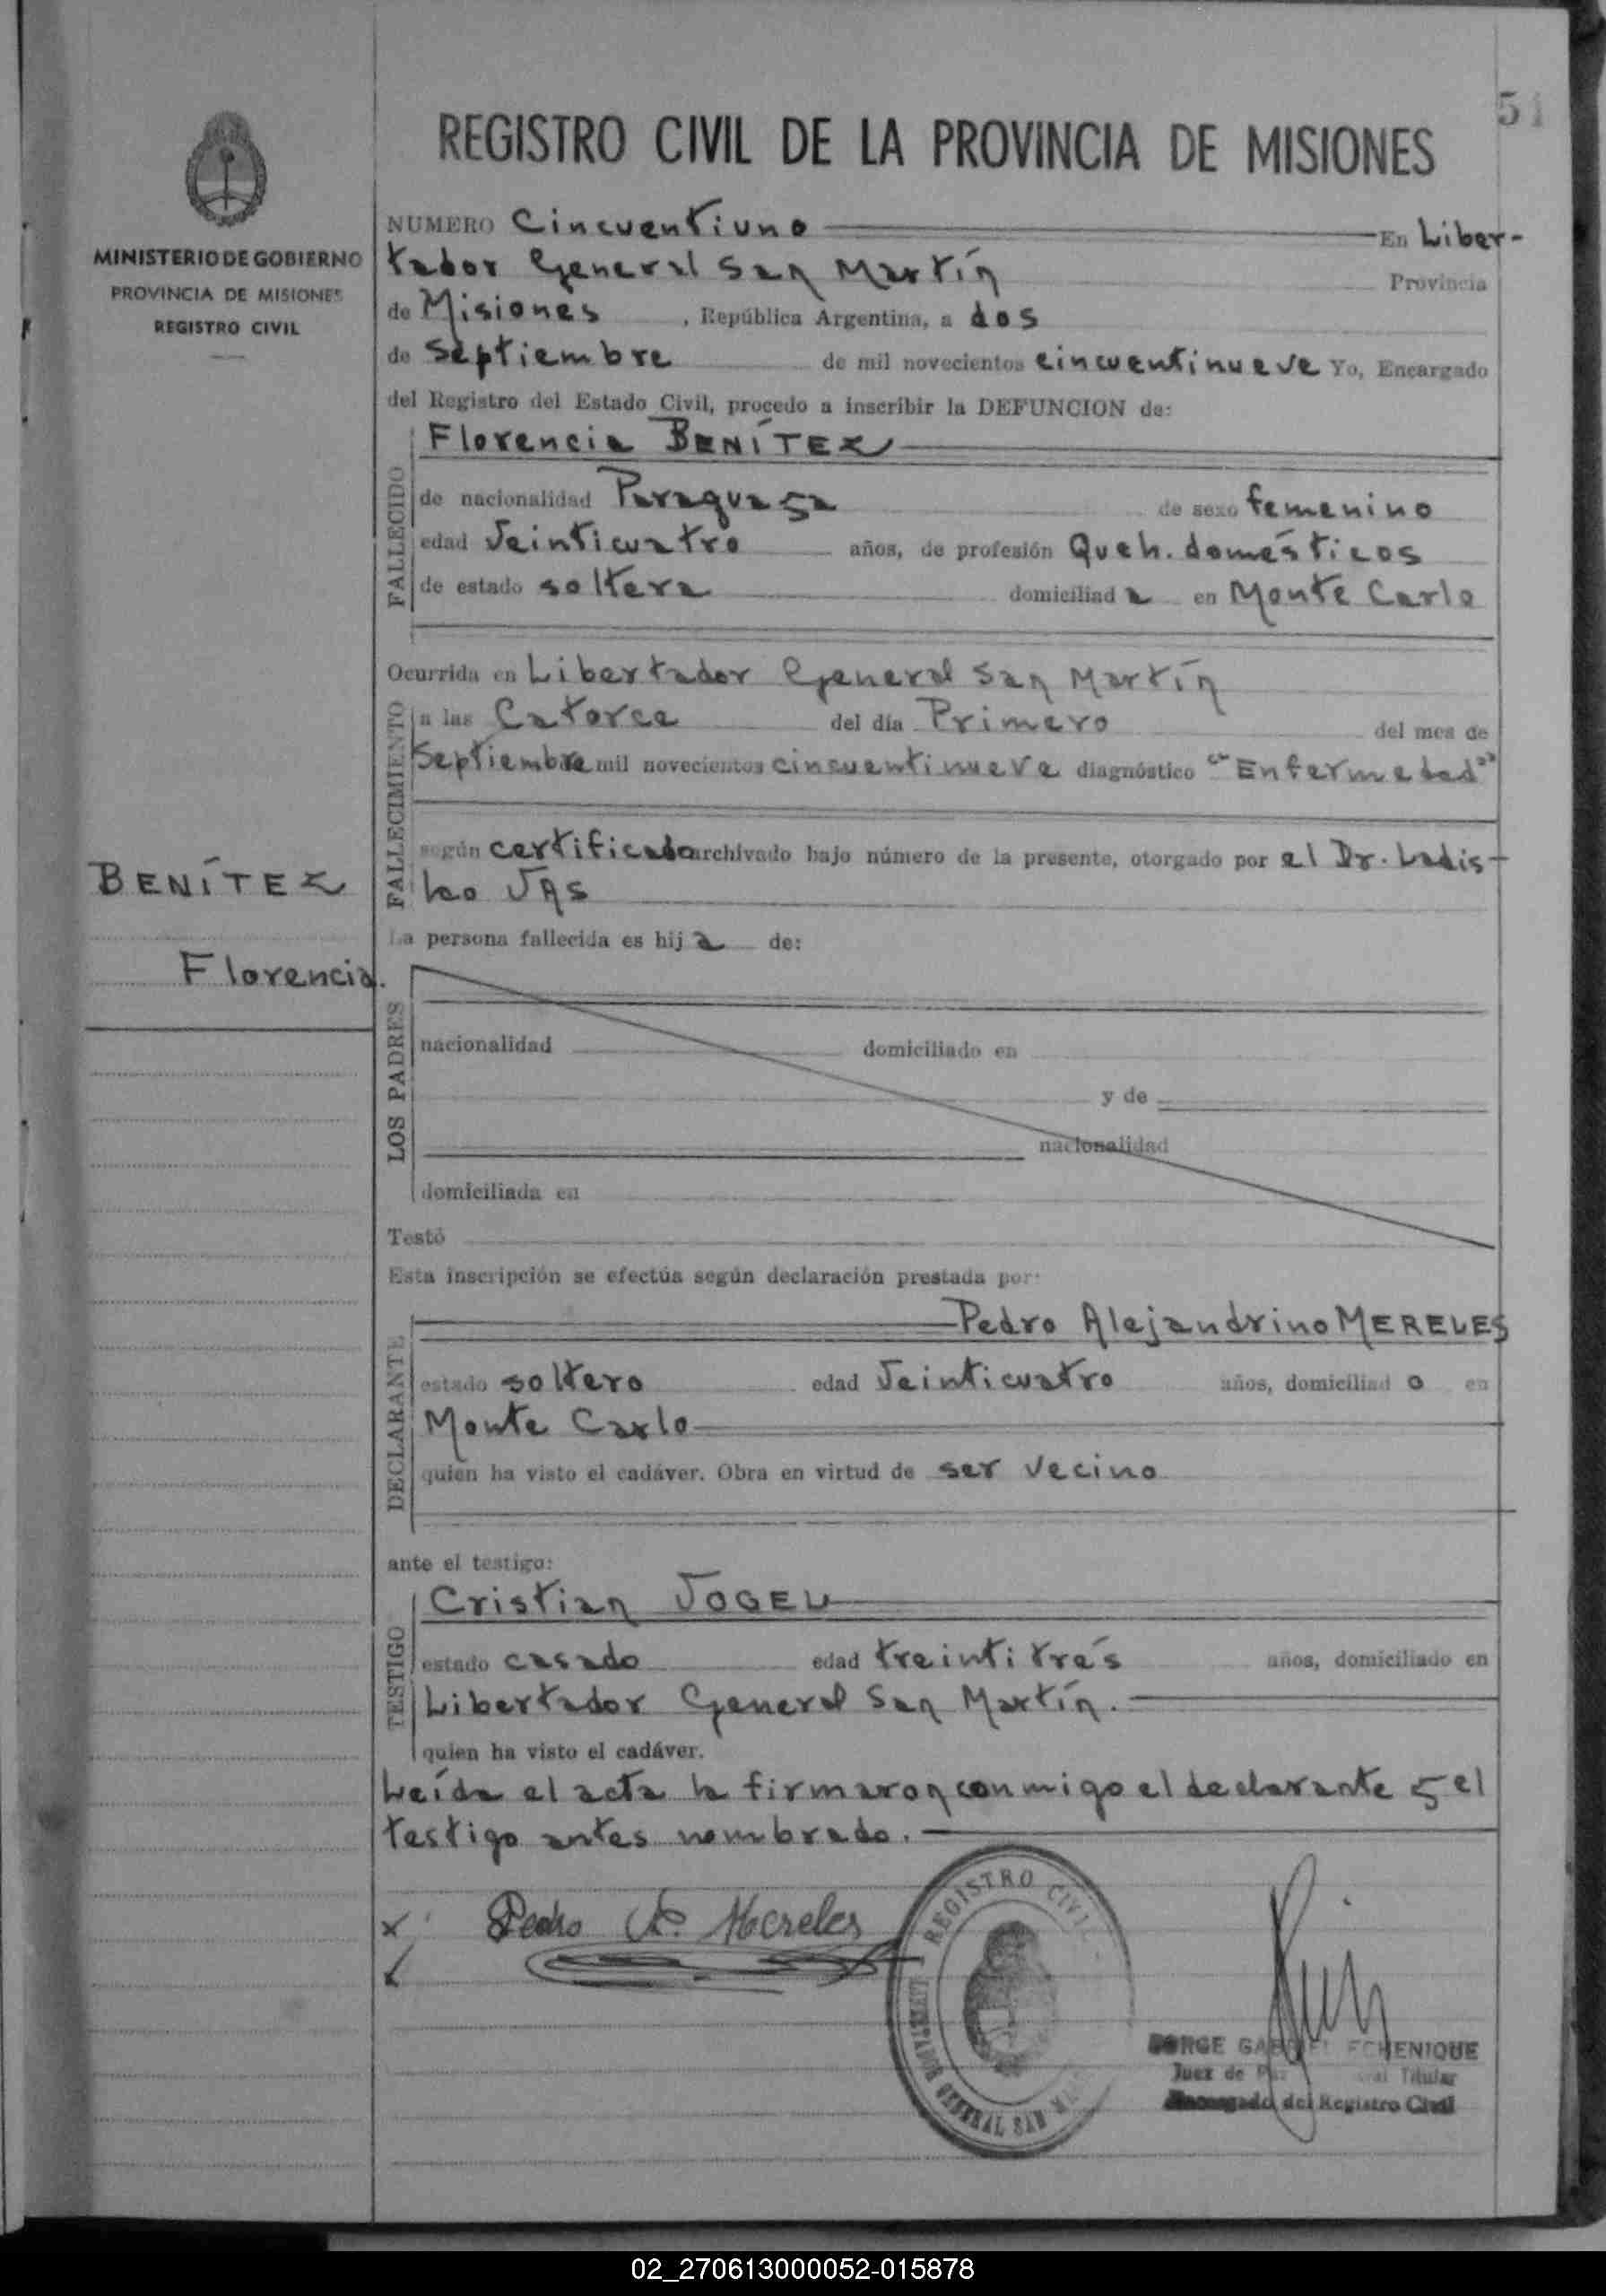 51
REGISTRO CIVIL DE LA PROVINCIA DE MISIONES
MINISTERIO DE GOBIERNO
PROVINCIA DE MISIONES
REGISTRO CIVIL
NUMERO Cincuentiuno En Liber-
tador General San Martín Provincia
de Misiones , República Argentina, a dos
de Septiembre de mil novecientos cincuentinueve Yo, Encargado
del Registro del Estado Civil, procedo a inscribir la DEFUNCION de:
FALLECIDO
Florencia BENÍTEZ
de nacionalidad Paraguaya de sexo femenino
edad Veinticuatro años, de profesión Queh. domésticos
de estado soltera domiciliad a en Monte Carlo
Ocurrida en Libertador General San Martín
FALLECIMIENTO
a las Catorce del día Primero del mes de
Septiembre mil novecientos cincuentinueve diagnóstico "Enfermedad"
según certificado archivado bajo número de la presente, otorgado por el Dr. Ladis-
lao VAS
BENÍTEZ
Florencia.
La persona fallecida es hij a de:
LOS PADRES
nacionalidad domiciliado en
y de
nacionalidad
domiciliada en
Testó
Esta inscripción se efectúa según declaración prestada por:
DECLARANTE
Pedro Alejandrino MERELES
estado soltero edad Veinticuatro años, domiciliad o en
Monte Carlo
quien ha visto el cadáver. Obra en virtud de ser vecino
ante el testigo:
TESTIGO
Cristian VOGEL
estado casado edad treintitrés años, domiciliado en
Libertador General San Martín.
quien ha visto el cadáver.
Leída el acta la firmaron conmigo el declarante y el
testigo antes nombrado.
Pedro A. Mereles
REGISTRO CIVIL
LIBERTADOR GENERAL SAN MARTIN
JORGE GABRIEL ECHENIQUE
Juez de Paz Titular
Encargado del Registro Civil
02_270613000052-015878